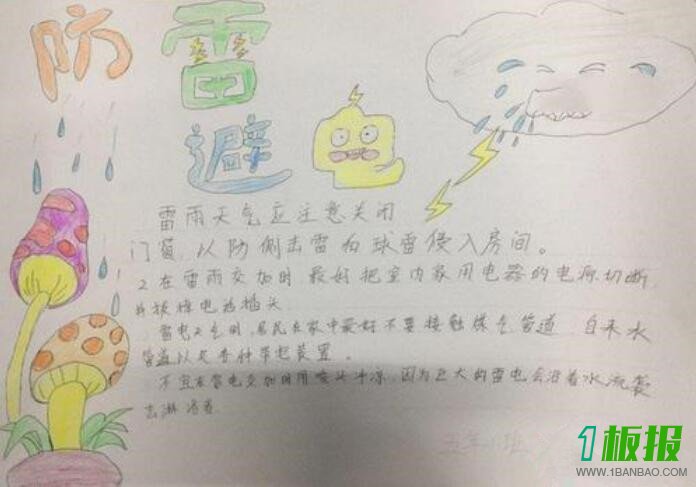 防雷
避电
雷雨天气应注意关闭
门窗,以防侧击雷和球雷侵入房间。
2在雷雨交加时,最好把室内家用电器的电源切断
并拔掉电话插头
雷电天气时,居民在家中最好不要接触煤气管道、自来水
管道以及各种带电装置。
不宜在雷电交加时用喷头冲凉,因为巨大的雷电会沿着水流袭
击淋浴者
五年1班
1板报
WWW.1BANBAO.COM